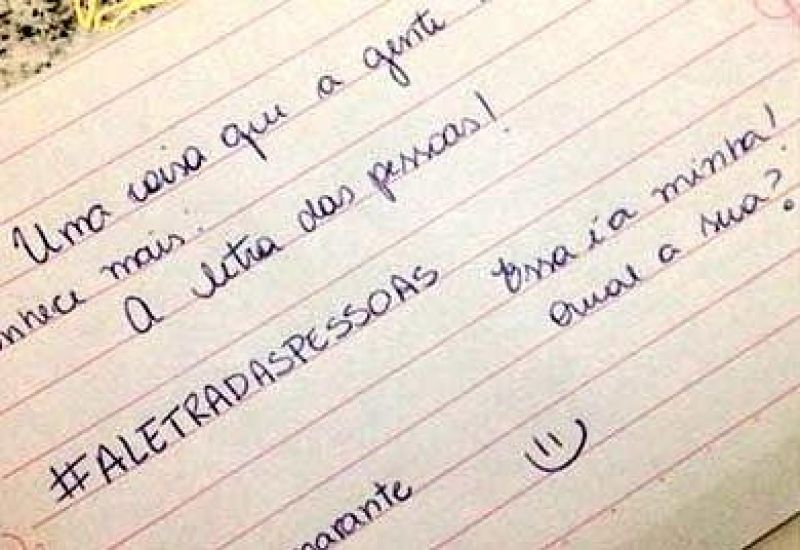 Uma coisa que a gente
nhece mais:
A letra das pessoas!
#ALETRADASPESSOAS
Essa é a minha!
Qual a sua?
marante